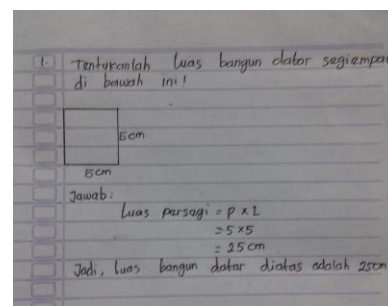 1. Tentukanlah luas bangun datar segiempa
di bawah ini!
5cm
5cm
Jawab:
Luas parsagi = P x L
= 5 x 5
= 25 cm
Jadi, luas bangun datar diatas adalah 25cm